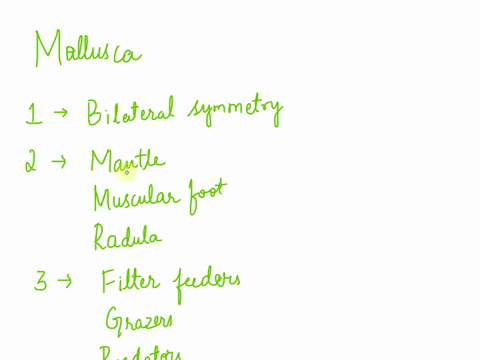 Mallusca
1 → Bilateral symmetry
2 → Mantle
Muscular foot
Radula
3 → Filter feeders
Grazers
Predators